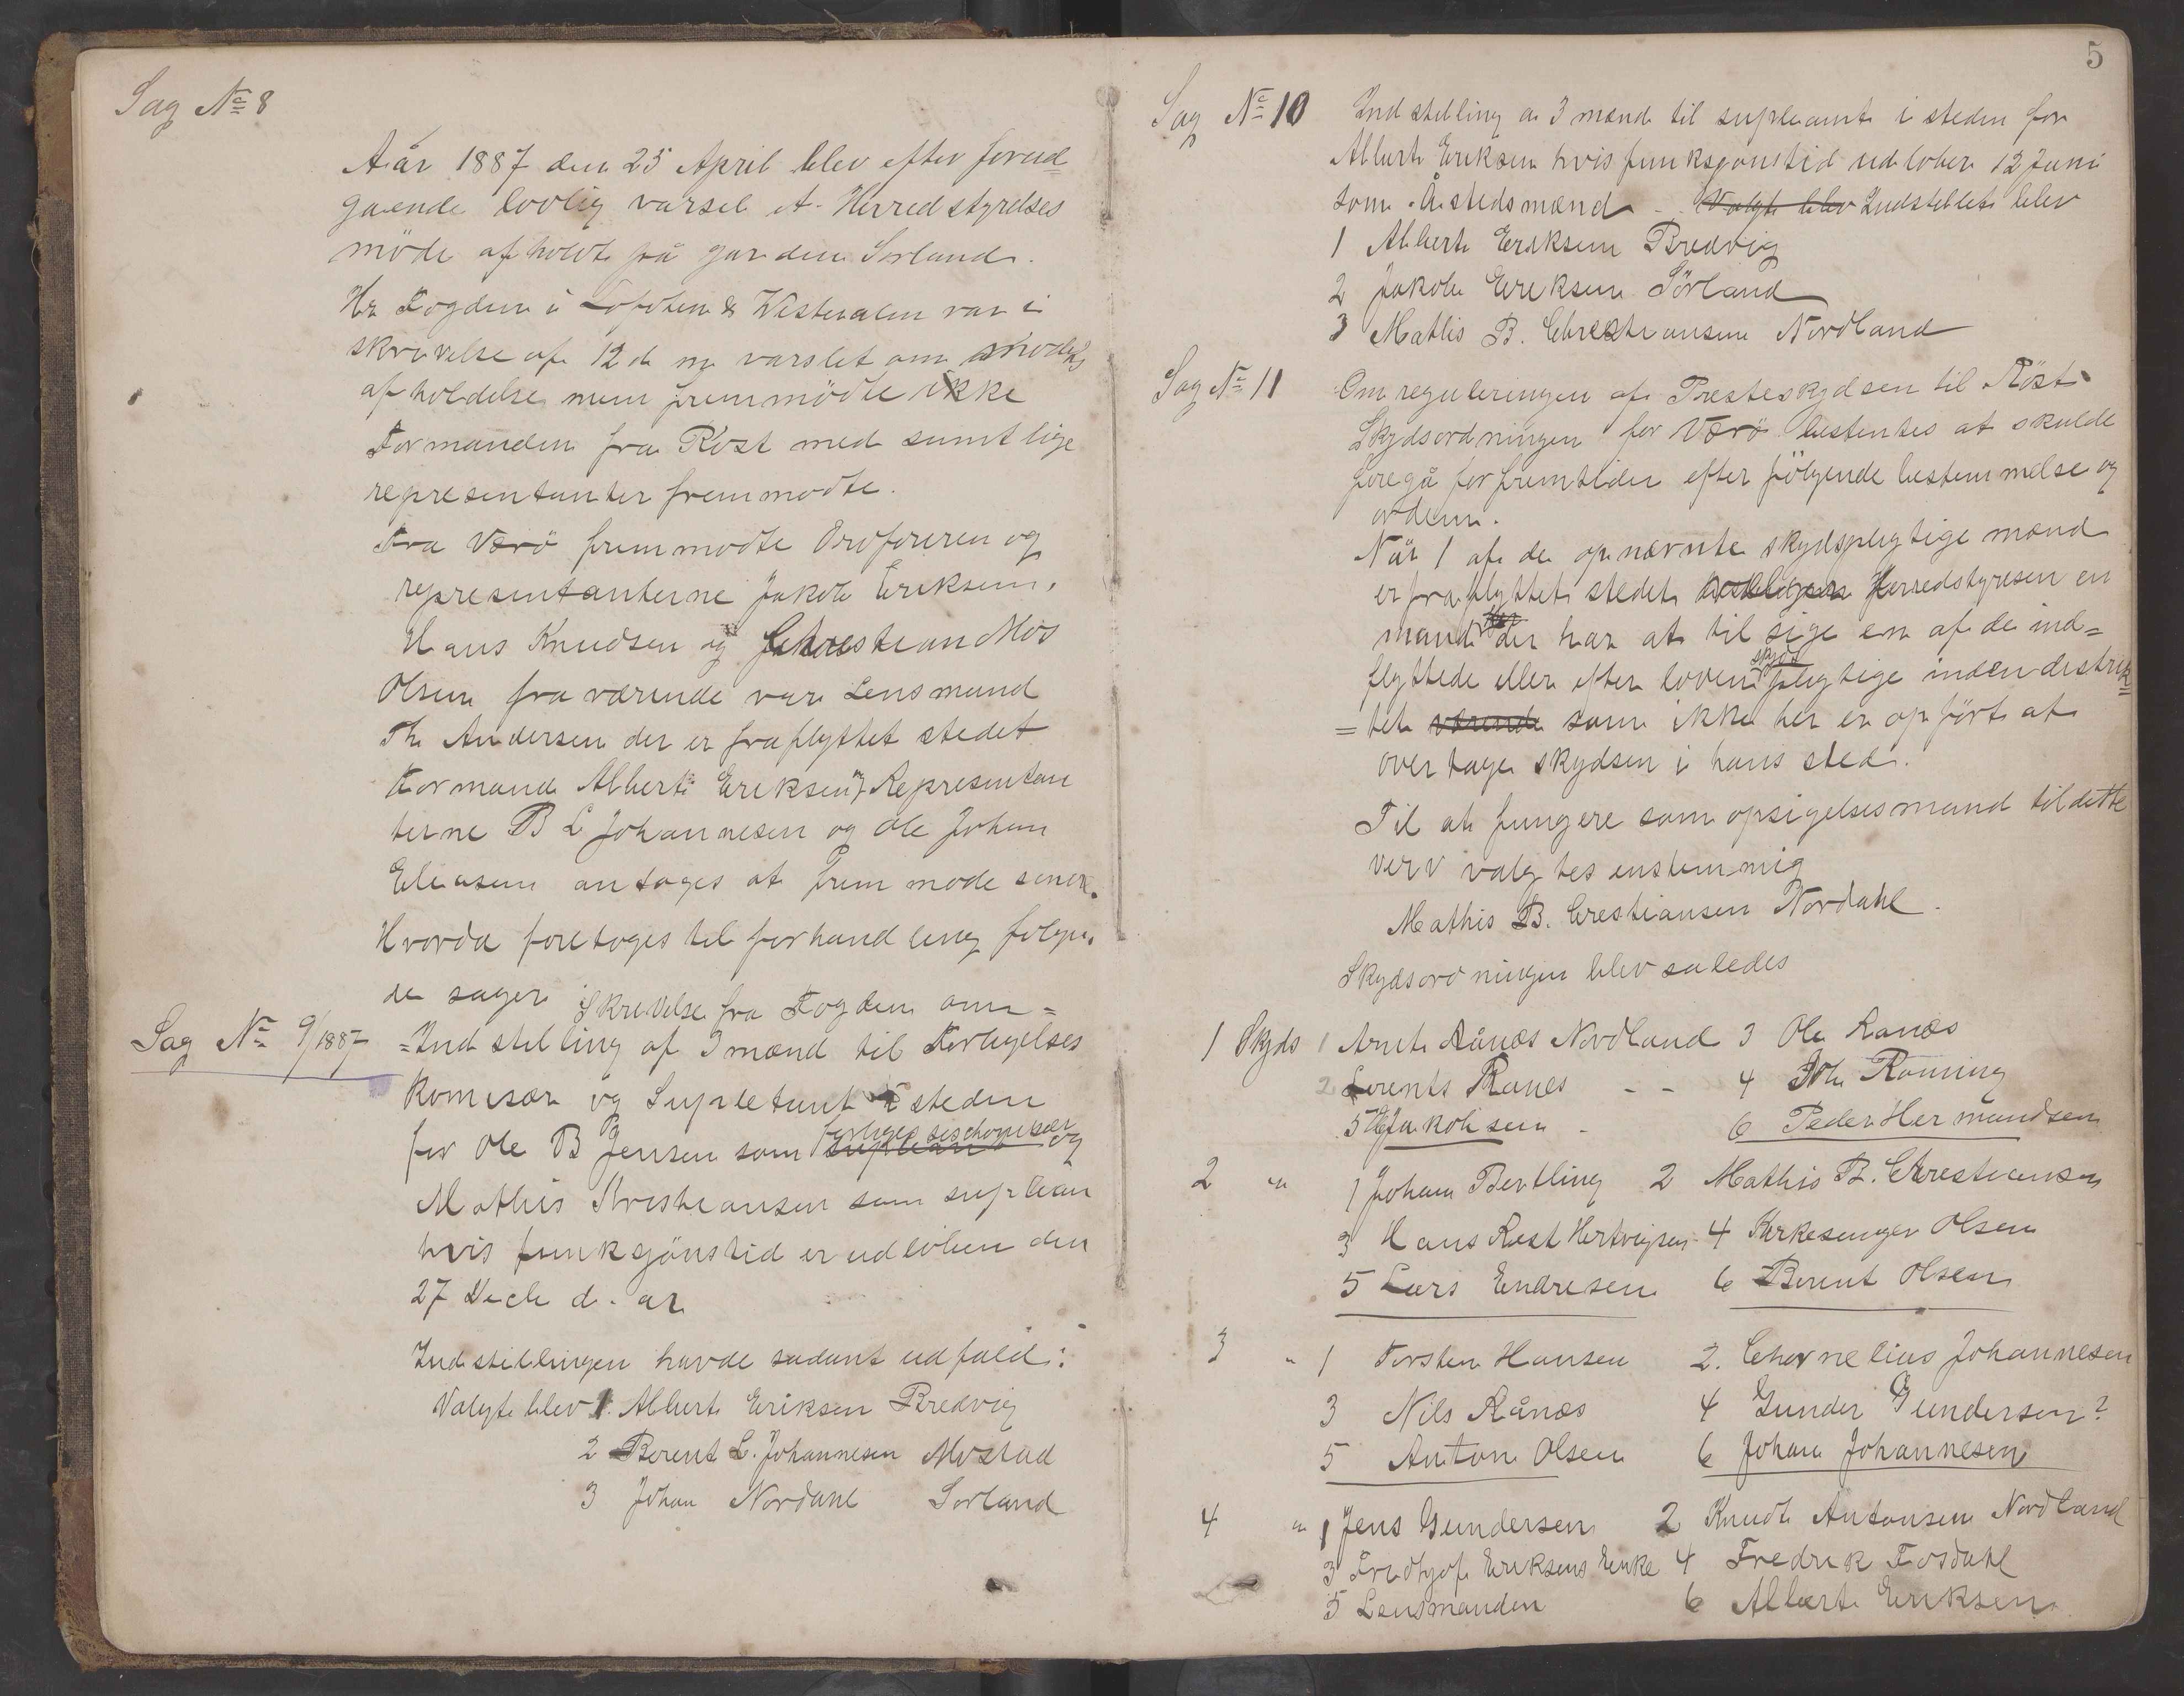 Sag No 8
Aår 1887 den 25 April blev efter forud=
gaende lovlig varsel et Herredstyrelses
möde afholdt på garden Sorland.
Hr Fogden i Lofoten & Westeralen var i
skrivelse af 12 d m varslet om mödets
afholdelse men fremmödte ikke
Formanden fra Röst med samtlige
representanter fremmodte.
Fra Værö fremmodte Ordföreren og
representanterne Jakob Eriksen,
Hans Knudsen og Chrestian Mos
Olsen fraværende var Lensmand
Th Andersen der er fraflyttet stedet
Formand Albert Eriksen, Representan
terne B L Johannesen og Ole Johan
Eleasen antoges at fremmode senere.
Hvorda foretoges til forhandling følgen,
de sager Skrivelse fra Fogden om=
Sag No 9/1887
=Indstilling af 3 mænd til Forligelses
Komisær og Supletant i steden
for Ole B Jensen som suplean forligelseschomisær og
Mathis Kristiansen som suplean
hvis funksjönstid er udloben den
27 Decb d. ar
Indstillingen havde sadant udfald:
Valgt blev 1. Albert Eriksen Bredvig
2 Berent L. Johannesen Mostad
3 Johan Nordahl Sorland
5
Sag No 10
Indstilling a 3 mænd til supleant i steden for
Albert Eriksen hvis funksjonstid udlober 12 Juni
som Åstedsmænd - Valgt blev Indstillet blev
1 Albert Eriksen Bredvig
2 Jakob Eriksen Sörland
3 Mathis B. Chrestiansen Nordland
Sag No 11
Om reguleringen af Presteskydsen til Röst
Skydsordningen for Værö bestemtes at skulde
foregå for fremtiden efter fölgende bestemmelse og
orden.
Når 1 af de opnævnte skydspligtige mænd
er fraflyttet stedet Herredstyresen en
mand der har at tilsige en af de ind=
flyttede eller efter loven skyds pligtige inden distrik=
=tet værende som ikke her er opfört at
overtage skydsen i hans sted.
Til at fungere som opsigelsesmand til dette
verv valgtes enstemmig
Mathis B. Crestiansen Nordahl.
Skydsordningen blev saledes
1 Skyds 1 Arnt Rånæs Nordland 3 Ole Ranæs
2 Lorents Ranes - - 4 Joh Röming
5 Jakobsen - 6 Peder Hermundsen
2 " 1 Johan Bertling 2 Mathis B. Chrestiansen
3 Hans Rost Hertvigsen 4 Kirkesanger Olsen
5 Lars Endresen 6 Berent Olsen
3 " 1 Torsten Hansen 2. Chornelius Johannesen
3 Nils Rånæs 4 Gunder Gundersen?
5 Anton Olsen 6 Johan Johannesen
4 " 1 Jens Gundersen 2 Knudt Antonsen Nordland
3 Fridtjof Eriksens Enke 4 Fredrik Fosdahl
5 Lensmanden 6 Albert Eriksen